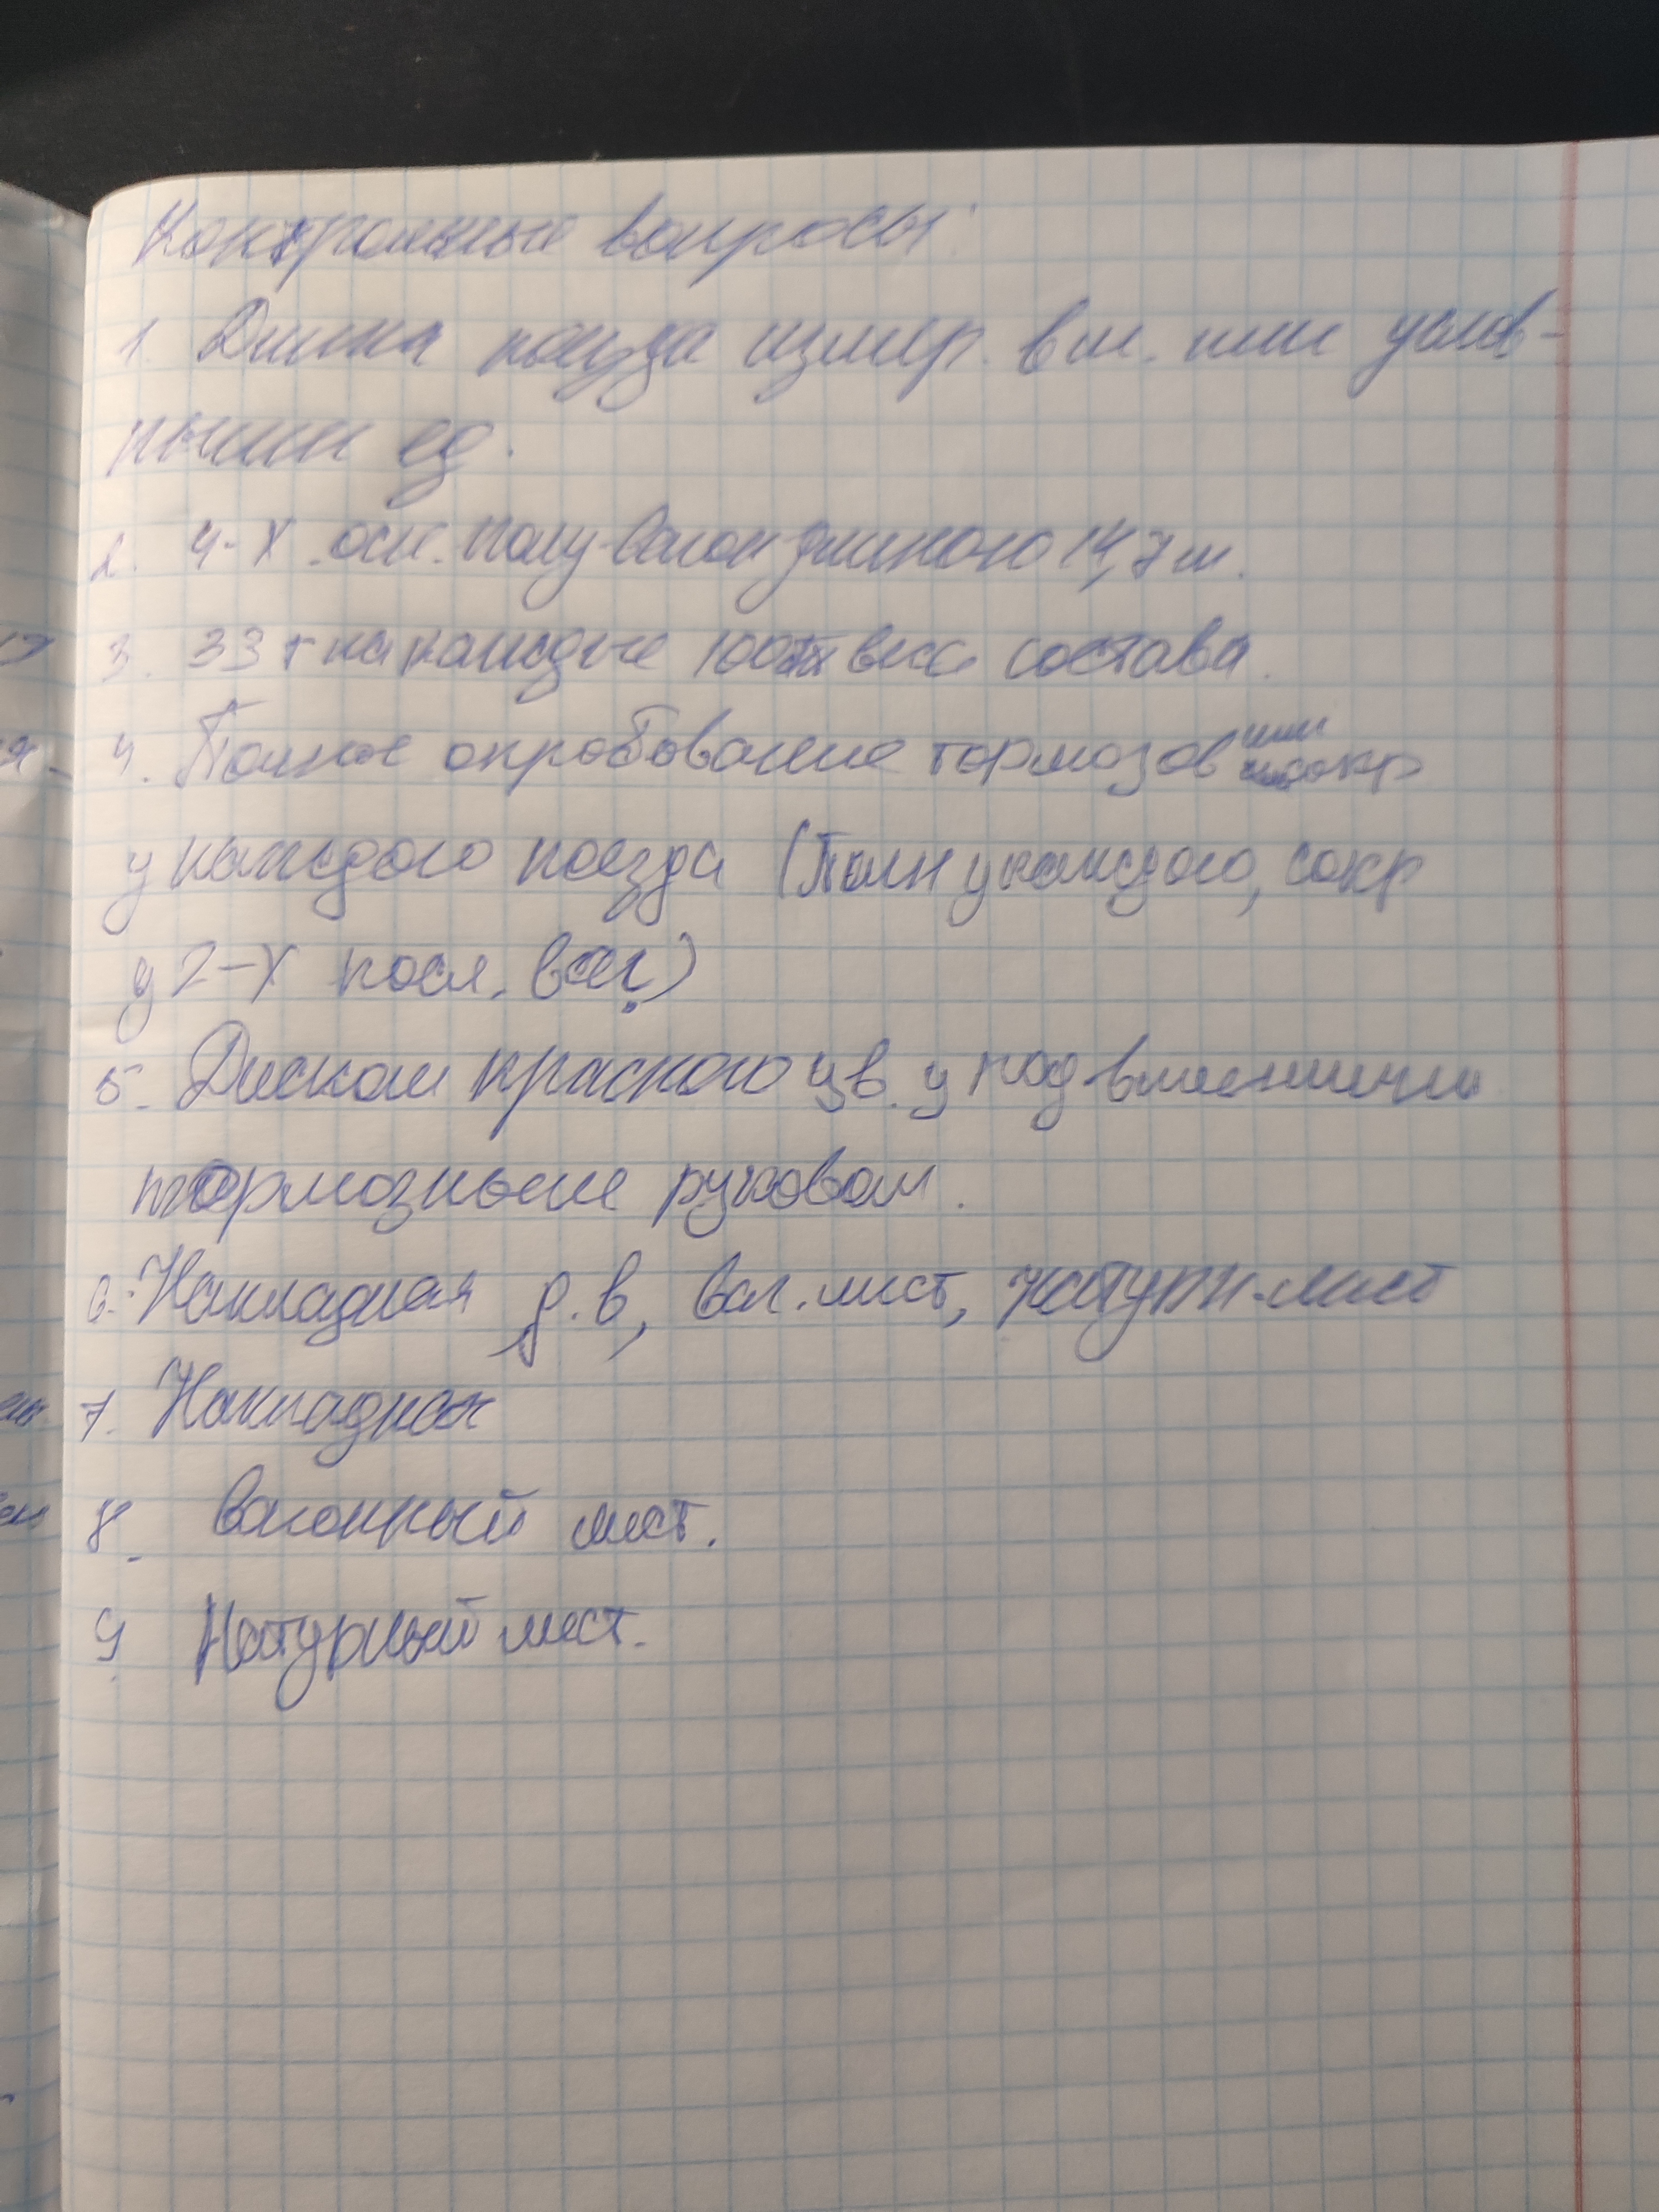 Контрольные вопросы:
1. Длина поезда измер. в м. или услов-
ными ед.
2. 4-х осн. полу-вагон длиною 14,7 м.
3. 33 т на каждые 100 веса состава.
4. Полное опробование тормозов или сокр
у каждого поезда (Полн у каждого, сокр
у 2-х посл. ваг.)
5. Диском красного цв. у подвлиенничи
тормозныее руковом.
6. Накладная д.в, ваг. лист, натурн-лист
7. Накладная
8. Вагонный лист.
9. Натурный лист.